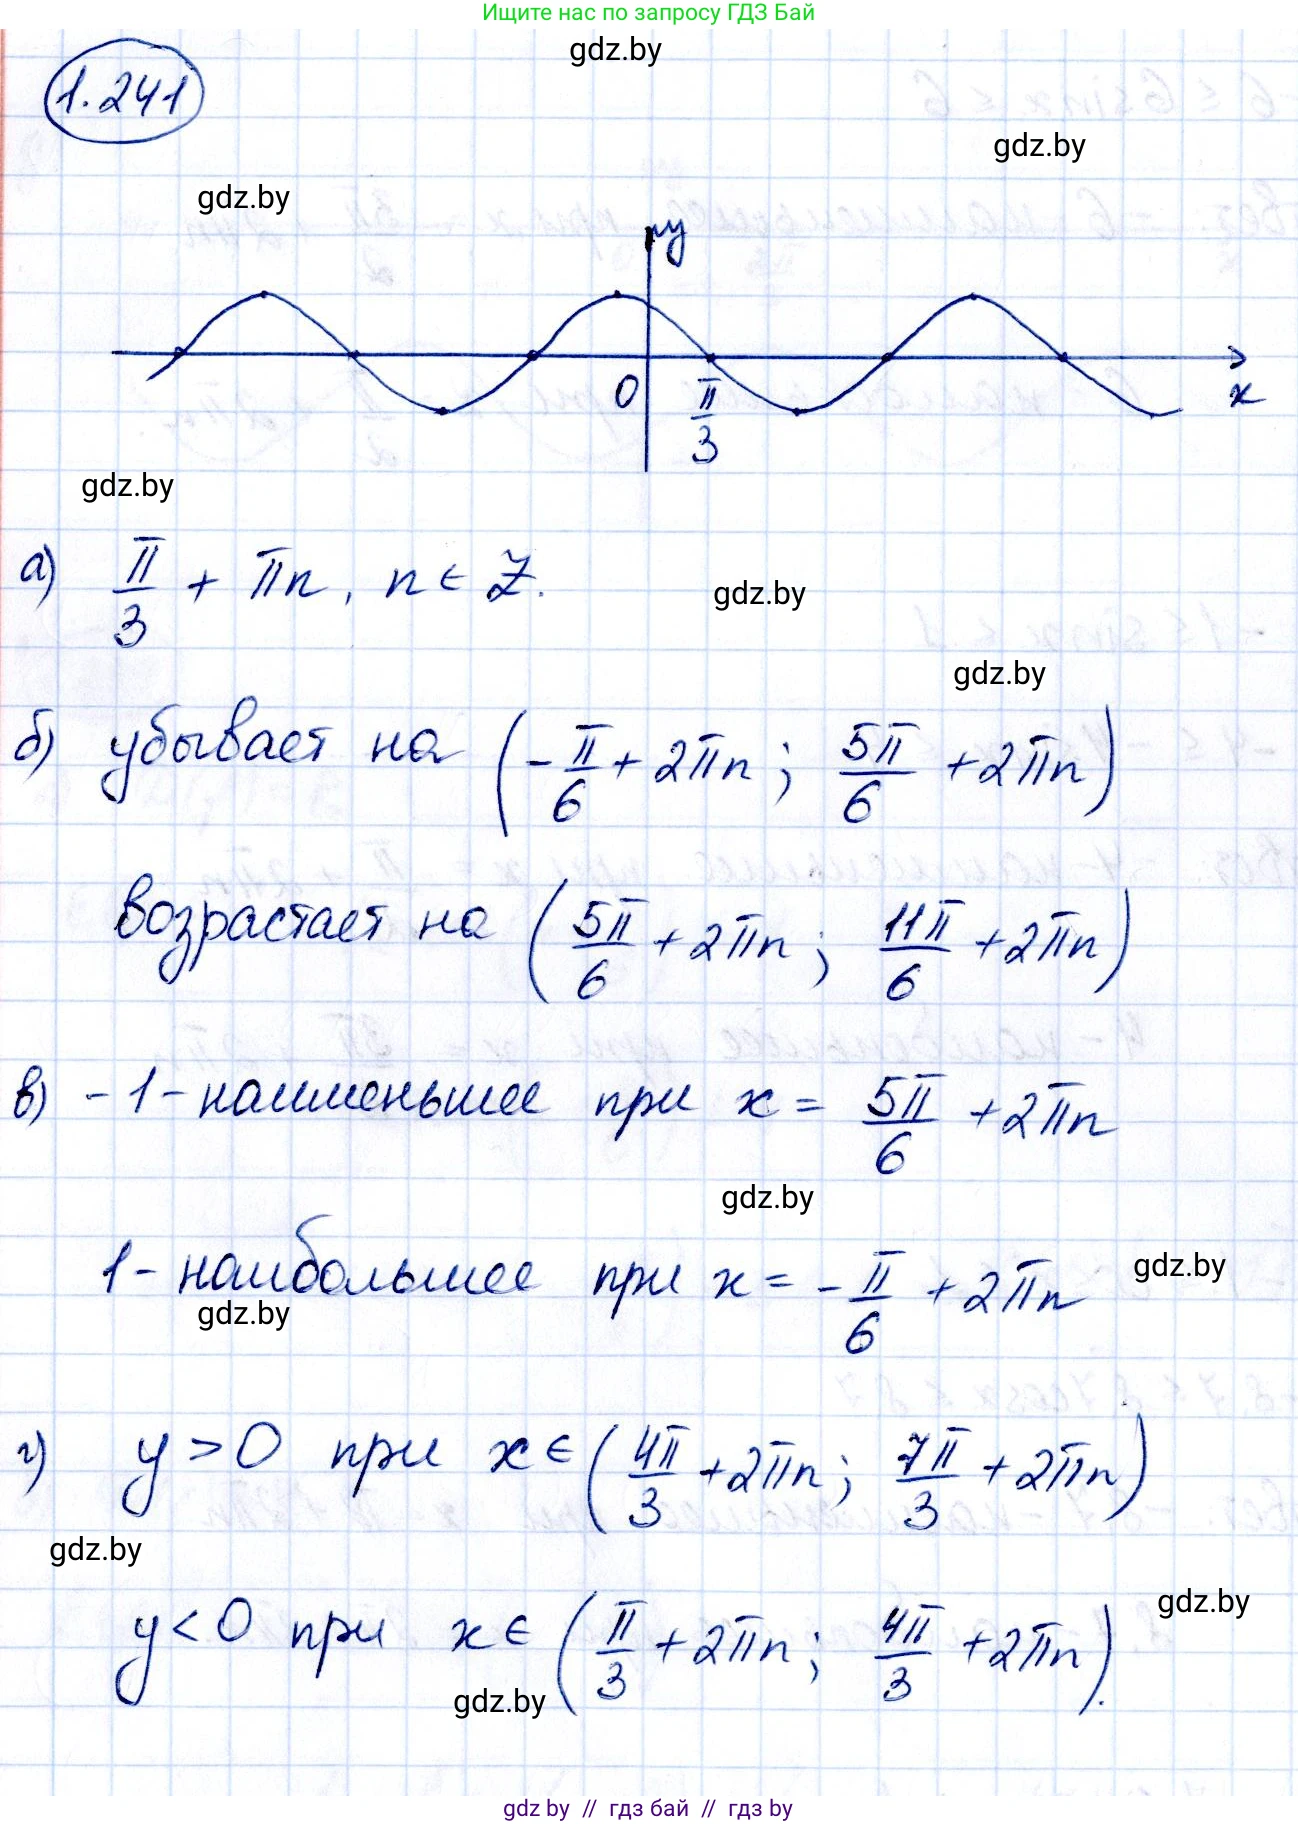 Ищите нас по запросу ГДЗ Бай
gdz.by
1.241
gdz.by
gdz.by
y
0
π/3
x
gdz.by
а) π/3 + πn, n ∈ Z.
gdz.by
gdz.by
б) убывает на (-π/6 + 2πn; 5π/6 + 2πn)
возрастает на (5π/6 + 2πn; 11π/6 + 2πn)
в) -1 - наименьшее при x = 5π/6 + 2πn
gdz.by
1 - наибольшее при x = -π/6 + 2πn
gdz.by
gdz.by
г) y > 0 при x ∈ (4π/3 + 2πn; 7π/3 + 2πn)
gdz.by
y < 0 при x ∈ (π/3 + 2πn; 4π/3 + 2πn).
gdz.by
gdz.by
gdz by // гдз бай // гдз by